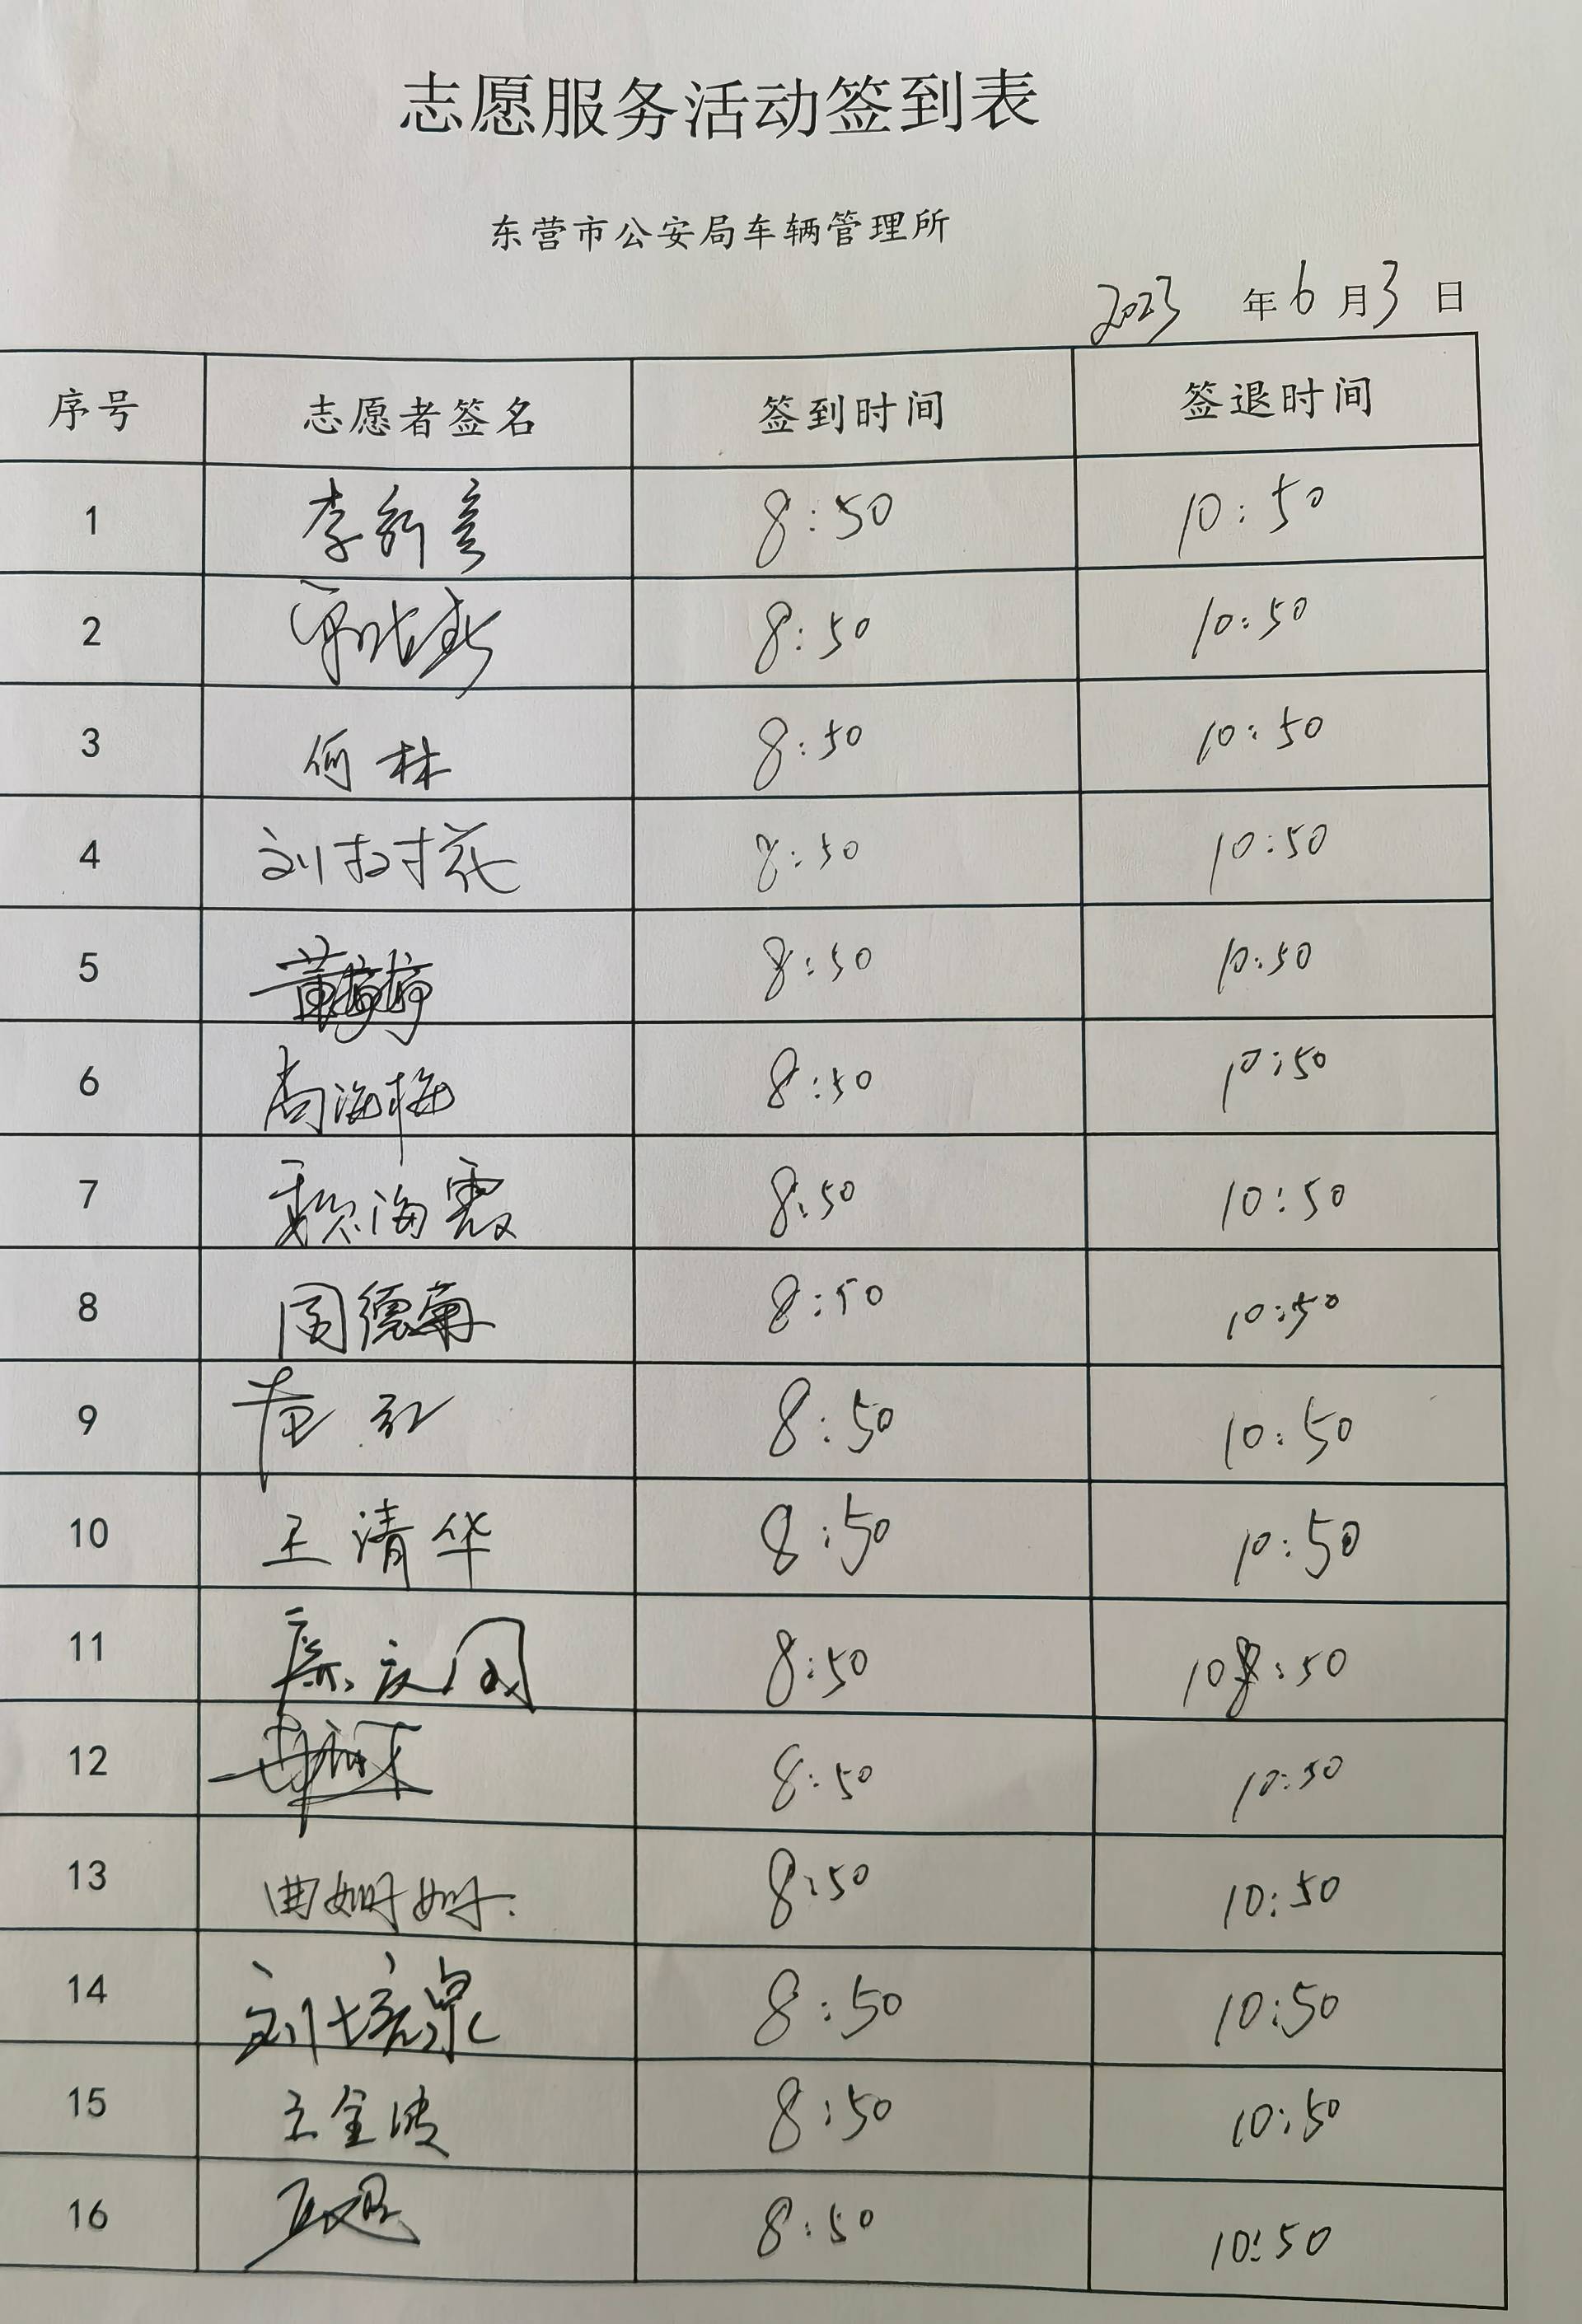 志愿服务活动签到表
东营市公安局车辆管理所
2023 年 6 月 3 日
序号 志愿者签名 签到时间 签退时间
1 李新彦 8:50 10:50
2 8:50 10:50
3 何林 8:50 10:50
4 刘树花 8:50 10:50
5 董婷婷 8:50 10:50
6 尚海梅 8:50 10:50
7 海霞 8:50 10:50
8 周德菊 8:50 10:50
9 黄红 8:50 10:50
10 王清华 8:50 10:50
11 庆国 8:50 10:50
12 8:50 10:50
13 曲婷婷. 8:50 10:50
14 刘培泉 8:50 10:50
15 王金波 8:50 10:50
16 8:50 10:50